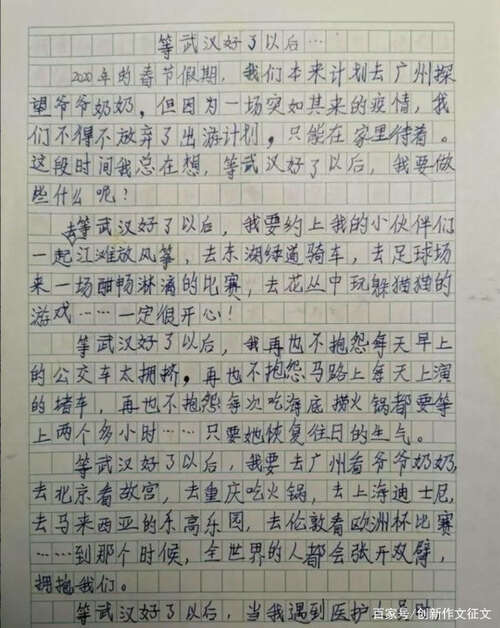 等武汉好了以后…
2020年的春节假期，我们本来计划去广州探
望爷爷奶奶，但因为一场突如其来的疫情，我
们不得不放弃了出游计划，只能在家里待着。
这段时间我总在想，等武汉好了以后，我要做
些什么呢？
等武汉好了以后，我要约上我的小伙伴们
一起江滩放风筝，去东湖绿道骑车，去足球场
来一场酣畅淋漓的比赛，去花丛中玩躲猫猫的
游戏……一定很开心！
等武汉好了以后，我再也不抱怨每天早上
的公交车太拥挤，再也不抱怨马路上每天上演
的堵车，再也不抱怨每次吃海底捞火锅都要等
上两个多小时……只要她恢复往日的生气。
等武汉好了以后，我要去广州看爷爷奶奶，
去北京看故宫，去重庆吃火锅，去上海迪士尼，
去马来西亚的乐高乐园，去伦敦看欧洲杯比赛
……到那个时候，全世界的人都会张开双臂，
拥抱我们。
等武汉好了以后，当我遇到医护
百家号/创新作文征文